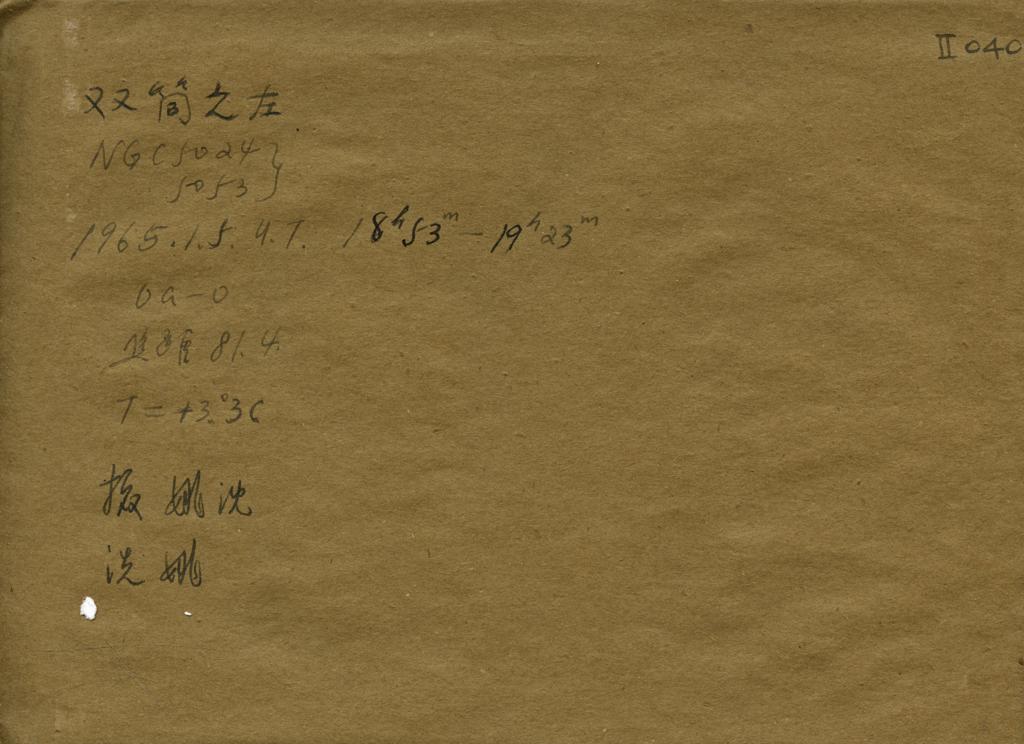 II 040
双筒之左
NGC 5024 }
5053 }
1965.1.5. U.T. 18ʰ53ᵐ - 19ʰ23ᵐ
Oa-O
距焦 81.4
T = +3.°3C
摄 姚沈
洗 姚